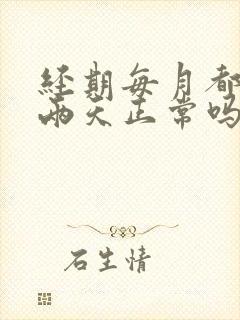 经期每月都
两天正常吗
石生情